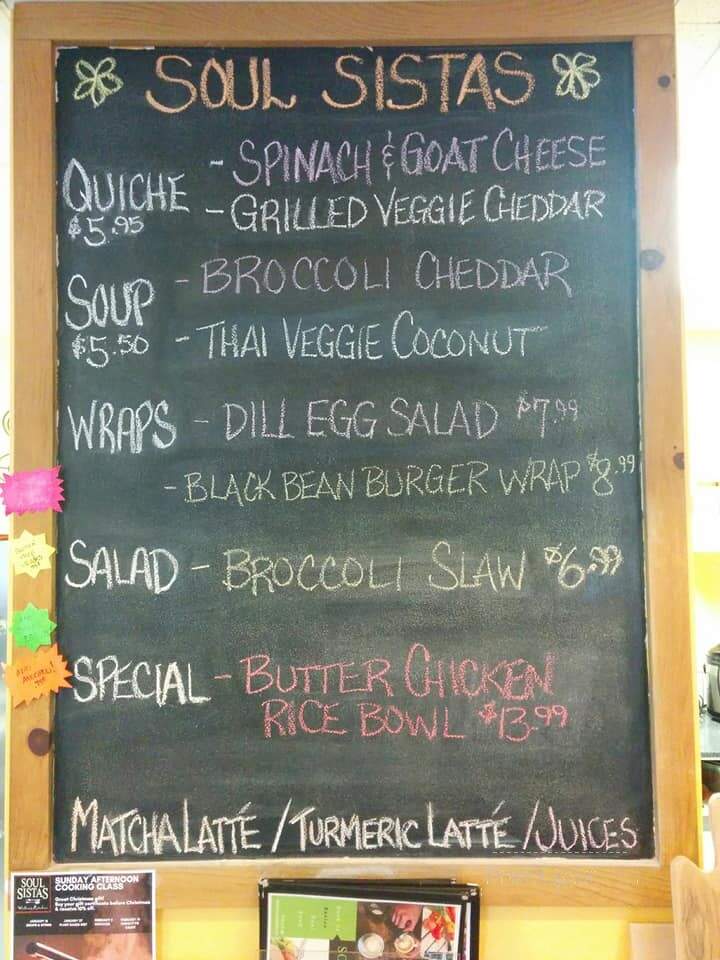 SOUL SISTAS
QUICHE - SPINACH & GOAT CHEESE
$5.95 - GRILLED VEGGIE CHEDDAR
SOUP - BROCCOLI CHEDDAR
$5.50 - THAI VEGGIE COCONUT
WRAPS - DILL EGG SALAD $7.99
- BLACK BEAN BURGER WRAP $8.99
SALAD - BROCCOLI SLAW $6.99
SPECIAL - BUTTER CHICKEN
RICE BOWL $13.99
MATCHA LATTÉ / TURMERIC LATTÉ / JUICES
SOUL
SISTAS
SUNDAY AFTERNOON
COOKING CLASS
Great Christmas gift!
Buy your gift certificate before Christmas
& receive 10% off.